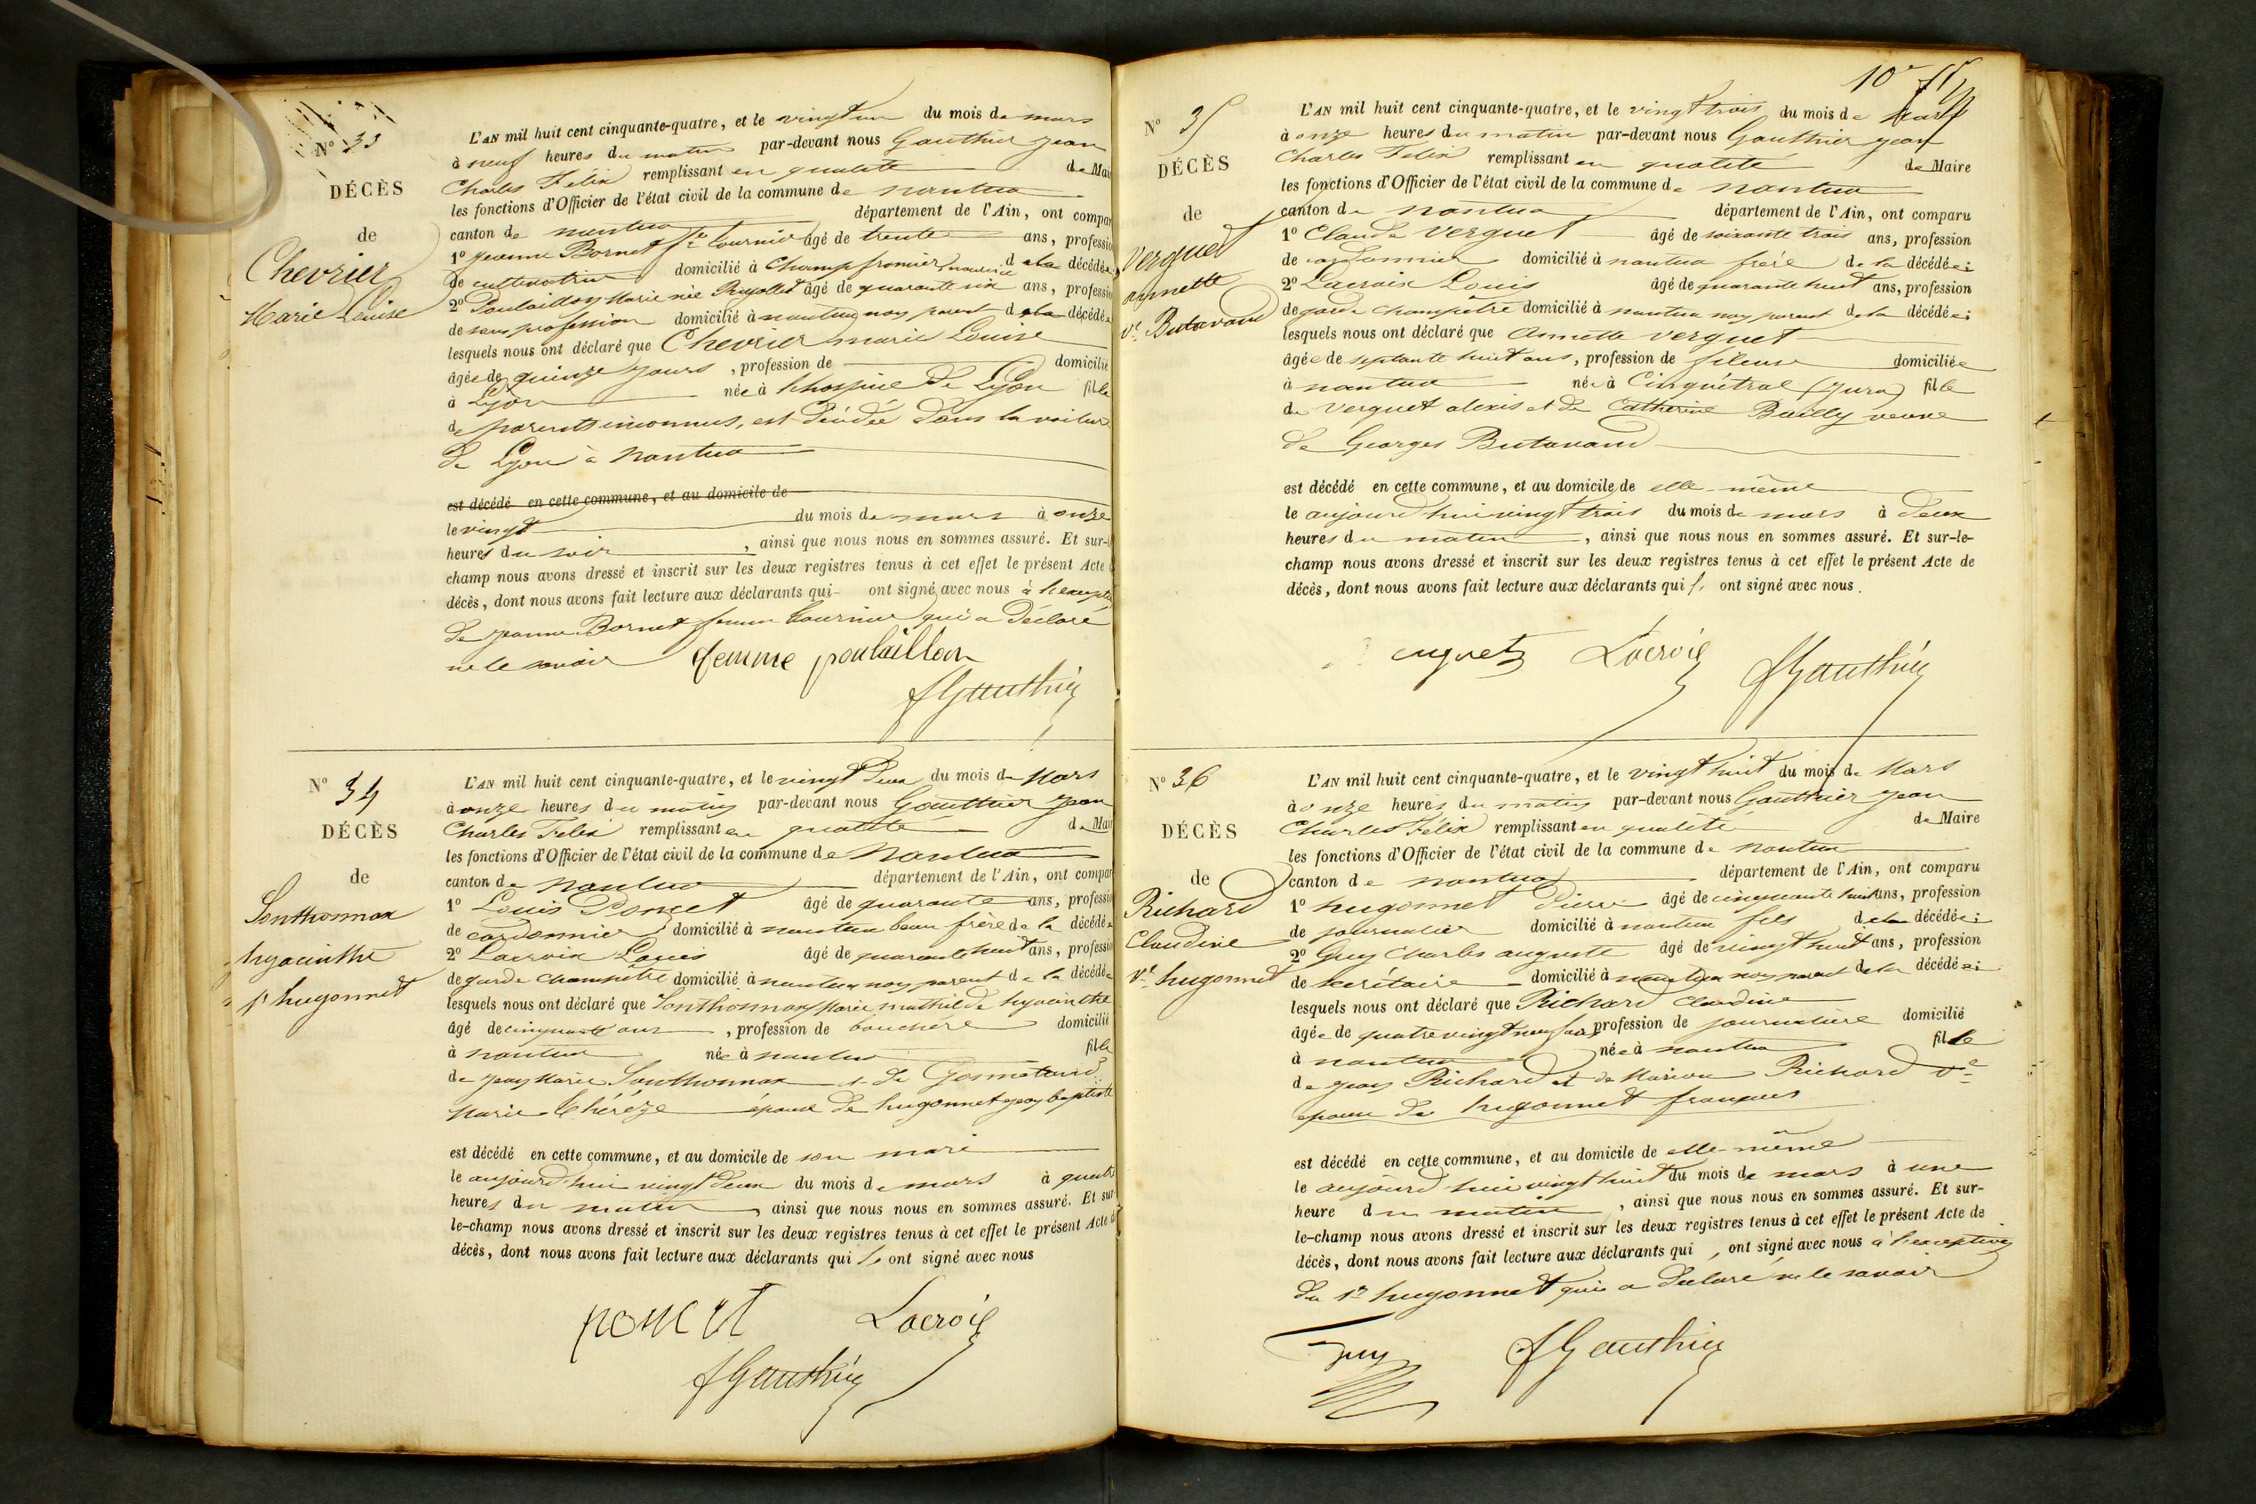 N° 33
DÉCÈS
de
Chevrier
Marie Louise
L'AN mil huit cent cinquante-quatre, et le vingt un du mois de mars
à neuf heures du matin par-devant nous Gauthier Jean
Charles Felix remplissant en qualité de Mai
les fonctions d'Officier de l'état civil de la commune de nantua
canton de nantua département de l'Ain, ont compar
1° jeanne Bornet fe tournier âgé de trente ans, professio
de cultivatrice domicilié à Champfromier nourrice de la décédée
2° Poulaillon Marie née âgé de quarante six ans, professio
de sans profession domicilié à nantua non parent de la décédée
lesquels nous ont déclaré que Chevrier marie Louise
âgée de quinze jours, profession de domicilié
à Lyon née à l'hospice de Lyon fille
de parents inconnus, est décédée dans la voiture
de Lyon à Nantua
est décédé en cette commune, et au domicile de
le vingt du mois de mars à onze
heures du soir, ainsi que nous nous en sommes assuré. Et sur-
champ nous avons dressé et inscrit sur les deux registres tenus à cet effet le présent Acte
décès, dont nous avons fait lecture aux déclarants qui ont signé avec nous à l'excepti
de jeanne Bornet femme tournier qui a déclaré
ne le savoir femme poulaillon
fGauthier
N° 34
DÉCÈS
de
Sonthonnax
hyacinthe
fe hugonnet
L'AN mil huit cent cinquante-quatre, et le vingt deux du mois de Mars
à onze heures du matin par-devant nous Gauthier Jean
Charles Felix remplissant en qualité de Mai
les fonctions d'Officier de l'état civil de la commune de Nantua
canton de Nantua département de l'Ain, ont compar
1° Louis Poncet âgé de quarante ans, professio
de cordonnier domicilié à nantua beau frère de la décédée
2° Lacroix Louis âgé de quarante huit ans, professio
de garde champêtre domicilié à nantua non parent de la décédée
lesquels nous ont déclaré que Sonthonnax Marie mathilde hyacinthe
âgé de cinquante ans, profession de bouchère domicilié
à nantua née à nantua fille
de jean Marie Sonthonnax et de
Marie Thérèze épouse de hugonnet jean baptiste
est décédé en cette commune, et au domicile de son mari
le aujourd'hui vingt deux du mois de mars à quatre
heures du matin, ainsi que nous nous en sommes assuré. Et sur
le-champ nous avons dressé et inscrit sur les deux registres tenus à cet effet le présent Acte d
décès, dont nous avons fait lecture aux déclarants qui ont signé avec nous
poncet Lacroix
fGauthier
10e
N° 35
DÉCÈS
de
Verguet
annette
ve Butavand
L'AN mil huit cent cinquante-quatre, et le vingt trois du mois de Mars
à onze heures du matin par-devant nous Gauthier jean
Charles Felix remplissant en qualité de Maire
les fonctions d'Officier de l'état civil de la commune de nantua
canton de nantua département de l'Ain, ont comparu
1° Claude Verguet âgé de soixante trois ans, profession
de cordonnier domicilié à nantua frère de la décédée;
2° Lacroix Louis âgé de quarante huit ans, profession
de garde champêtre domicilié à nantua non parent de la décédée;
lesquels nous ont déclaré que Annette Verguet
âgée de septante huit ans, profession de fileuse domiciliée
à nantua née à Cinquétral (Jura) fille
de Verguet alexis et de Catherine Bailly veuve
de Georges Butavand
est décédé en cette commune, et au domicile de elle-même
le aujourd'hui vingt trois du mois de mars à deux
heures du matin, ainsi que nous nous en sommes assuré. Et sur-le-
champ nous avons dressé et inscrit sur les deux registres tenus à cet effet le présent Acte de
décès, dont nous avons fait lecture aux déclarants qui ont signé avec nous.
Lacroix fGauthier
N° 36
DÉCÈS
de
Richard
Claudine
Ve hugonnet
L'AN mil huit cent cinquante-quatre, et le vingt huit du mois de Mars
à onze heures du matin par-devant nous Gauthier jean
Charles Félix remplissant en qualité de Maire
les fonctions d'Officier de l'état civil de la commune de nantua
canton de nantua département de l'Ain, ont comparu
1° hugonnet Pierre âgé de cinquante huit ans, profession
de journalier domicilié à nantua fils de la décédée;
2° Guy Charles auguste âgé de vingt huit ans, profession
de secrétaire domicilié à nantua non parent de la décédée;
lesquels nous ont déclaré que Richard Claudine
âgée de quatre vingt neuf ans profession de journalière domicilié
à nantua née à nantua fille
de jean Richard et de Marion Richard ve
epouse de hugonnet françois
est décédé en cette commune, et au domicile de elle-même
le aujourd'hui vingt huit du mois de mars à une
heure du matin, ainsi que nous nous en sommes assuré. Et sur-
le-champ nous avons dressé et inscrit sur les deux registres tenus à cet effet le présent Acte de
décès, dont nous avons fait lecture aux déclarants qui, ont signé avec nous à l'exception
du sr hugonnet qui a déclaré ne le savoir
Guy fGauthier